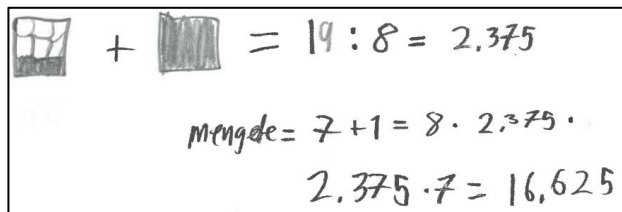 + = 19 : 8 = 2.375
mengde = 7 + 1 = 8 · 2.375 ·
2.375 · 7 = 16,625